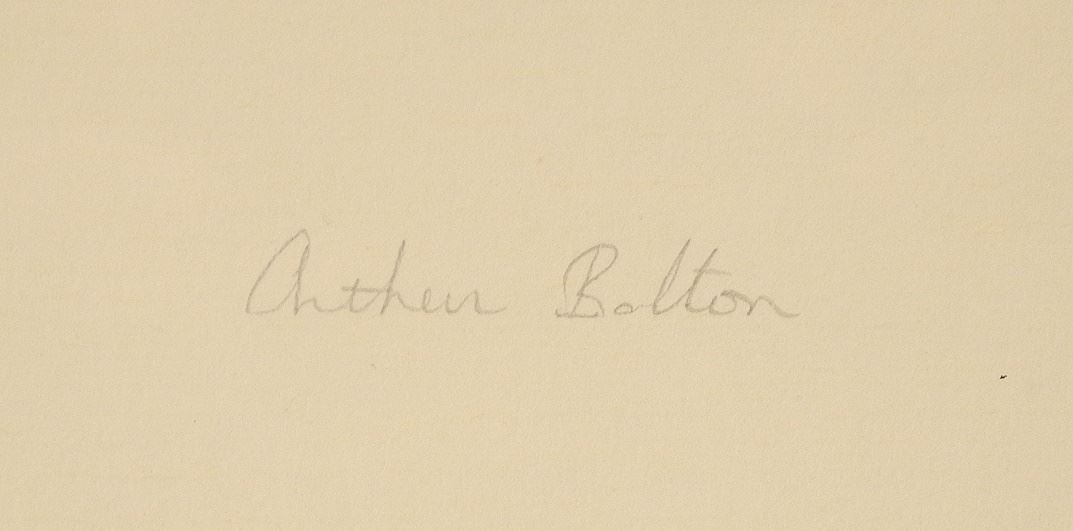 Arthur Bolton